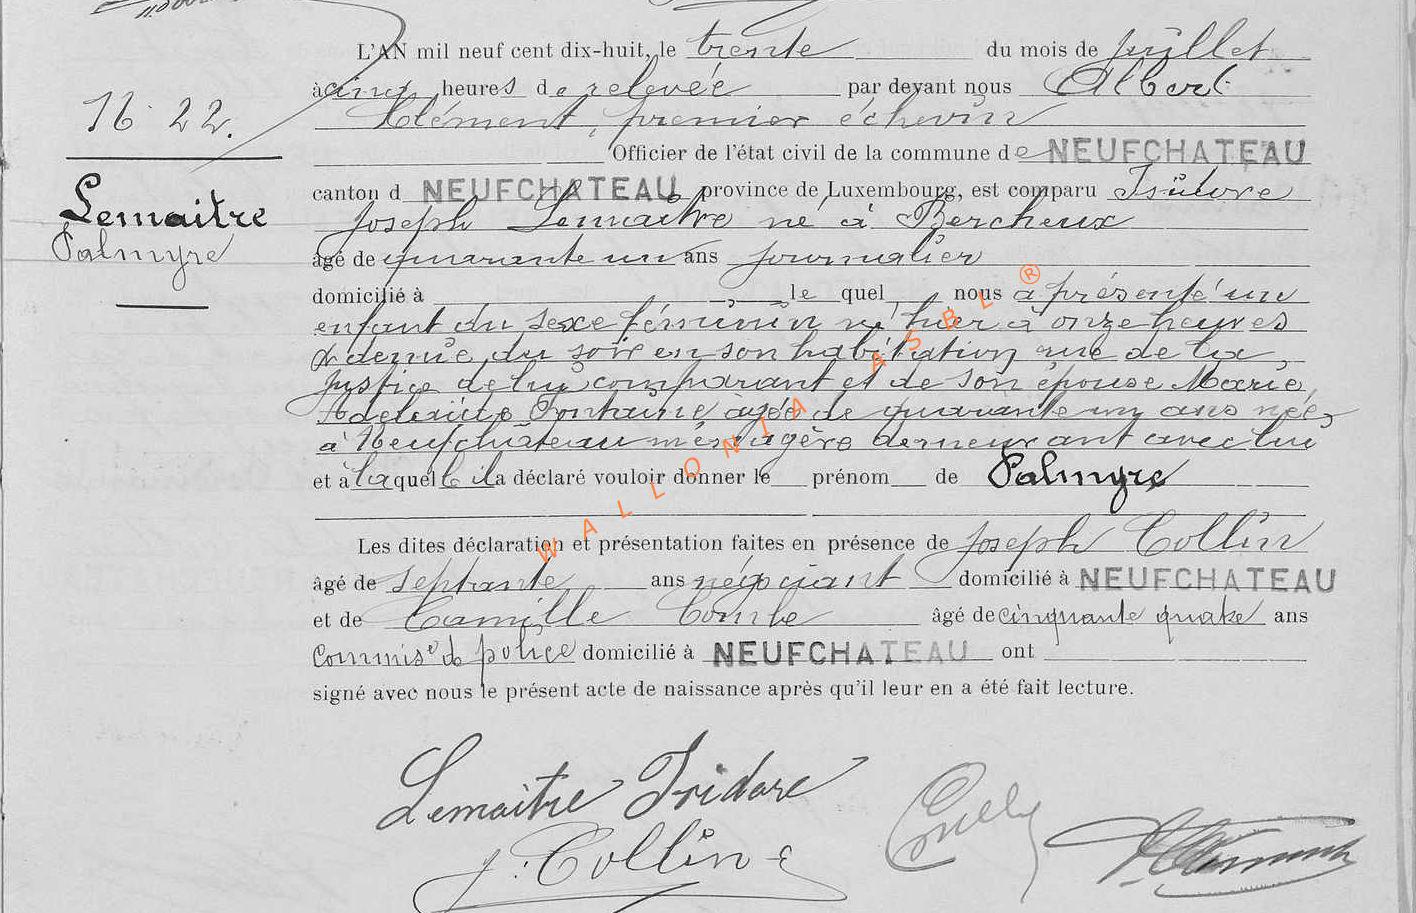 L'AN mil neuf cent dix-huit, le trente du mois de juillet
à cinq heures de relevée par devant nous Albert
Clément, premier échevin
Officier de l'état civil de la commune de NEUFCHATEAU
canton d NEUFCHATEAU province de Luxembourg, est comparu Isidore
Joseph Lemaitre né à Bercheux
âgé de quarante un ans journalier
domicilié à le quel nous a présenté un
enfant du sexe féminin né hier à onze heures
& demie du soir en son habitation rue de la
Justice de lui comparant et de son épouse Marie
Adelaïde Fontaine âgée de quarante un ans née
à Neufchâteau ménagère demeurant avec lui
et à laquelle il a déclaré vouloir donner le prénom de Palmyre
Les dites déclaration et présentation faites en présence de Joseph Collin
âgé de septante ans négociant domicilié à NEUFCHATEAU
et de Camille âgé de cinquante quatre ans
Commis de police domicilié à NEUFCHATEAU ont
signé avec nous le présent acte de naissance après qu'il leur en a été fait lecture.
N° 22.
Lemaitre
Palmyre
Lemaitre Isidore
J. Collin
WALLONIA ASBL ®